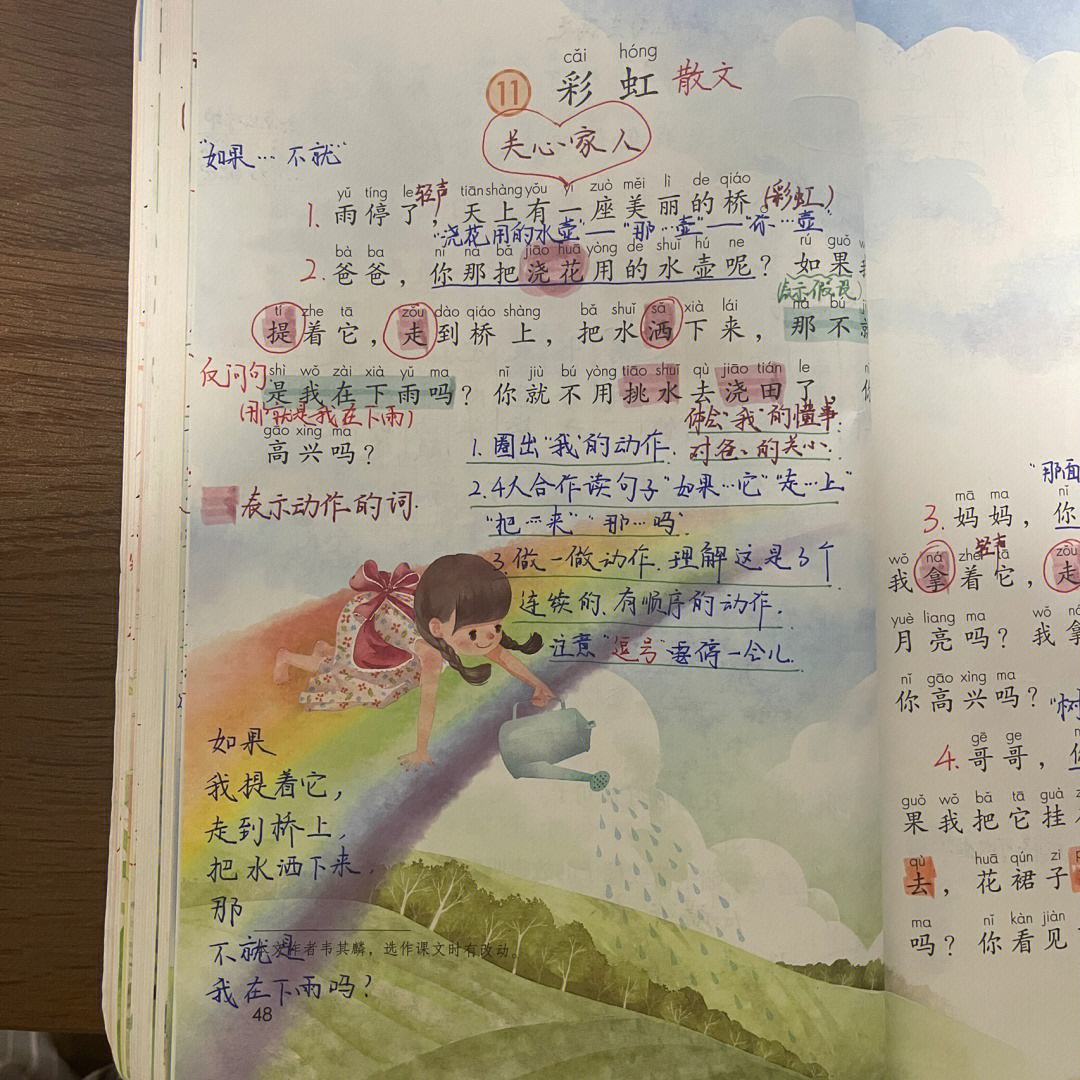 cǎi hóng
11 彩虹 散文
关心家人
"如果…不就"
yǔ tíng le tiān shàng yǒu yí zuò měi lì de qiáo
轻声
1. 雨停了，天上有一座美丽的桥。(彩虹)
"浇花用的水壶"—"那…壶"—"你…壶"
bà ba nǐ nà bǎ jiāo huā yòng de shuǐ hú ne rú guǒ
2. 爸爸，你那把浇花用的水壶呢？如果
(表示假设)
tí zhe tā zǒu dào qiáo shàng bǎ shuǐ sǎ xià lái nà bú
提着它，走到桥上，把水洒下来，那不就
反问句
shì wǒ zài xià yǔ ma nǐ jiù bú yòng tiāo shuǐ qù jiāo tián le
是我在下雨吗？你就不用挑水去浇田了
(那就是我在下雨)
体会"我"的懂事.
gāo xìng ma
高兴吗？
1.圈出"我"的动作. 对爸爸的关心.
表示动作的词.
2.4人合作读句子"如果…它""走…上"
"把…来""那…吗"
3.做一做动作.理解这是3个
连续的.有顺序的动作.
注意"逗号"要停一会儿.
如果
我提着它，
走到桥上，
把水洒下来.
那
不就是
我在下雨吗？
本文作者韦其麟，选作课文时有改动。
48
"那面
mā ma nǐ
3. 妈妈，你
轻声
wǒ ná zhe tā zǒu
我拿着它，走
yuè liang ma wǒ ná
月亮吗？我拿
nǐ gāo xìng ma
你高兴吗？
"树
gē ge
4. 哥哥，你
guǒ wǒ bǎ tā guà
果我把它挂
qù huā qún zi
去，花裙子
ma nǐ kàn jiàn
吗？你看见